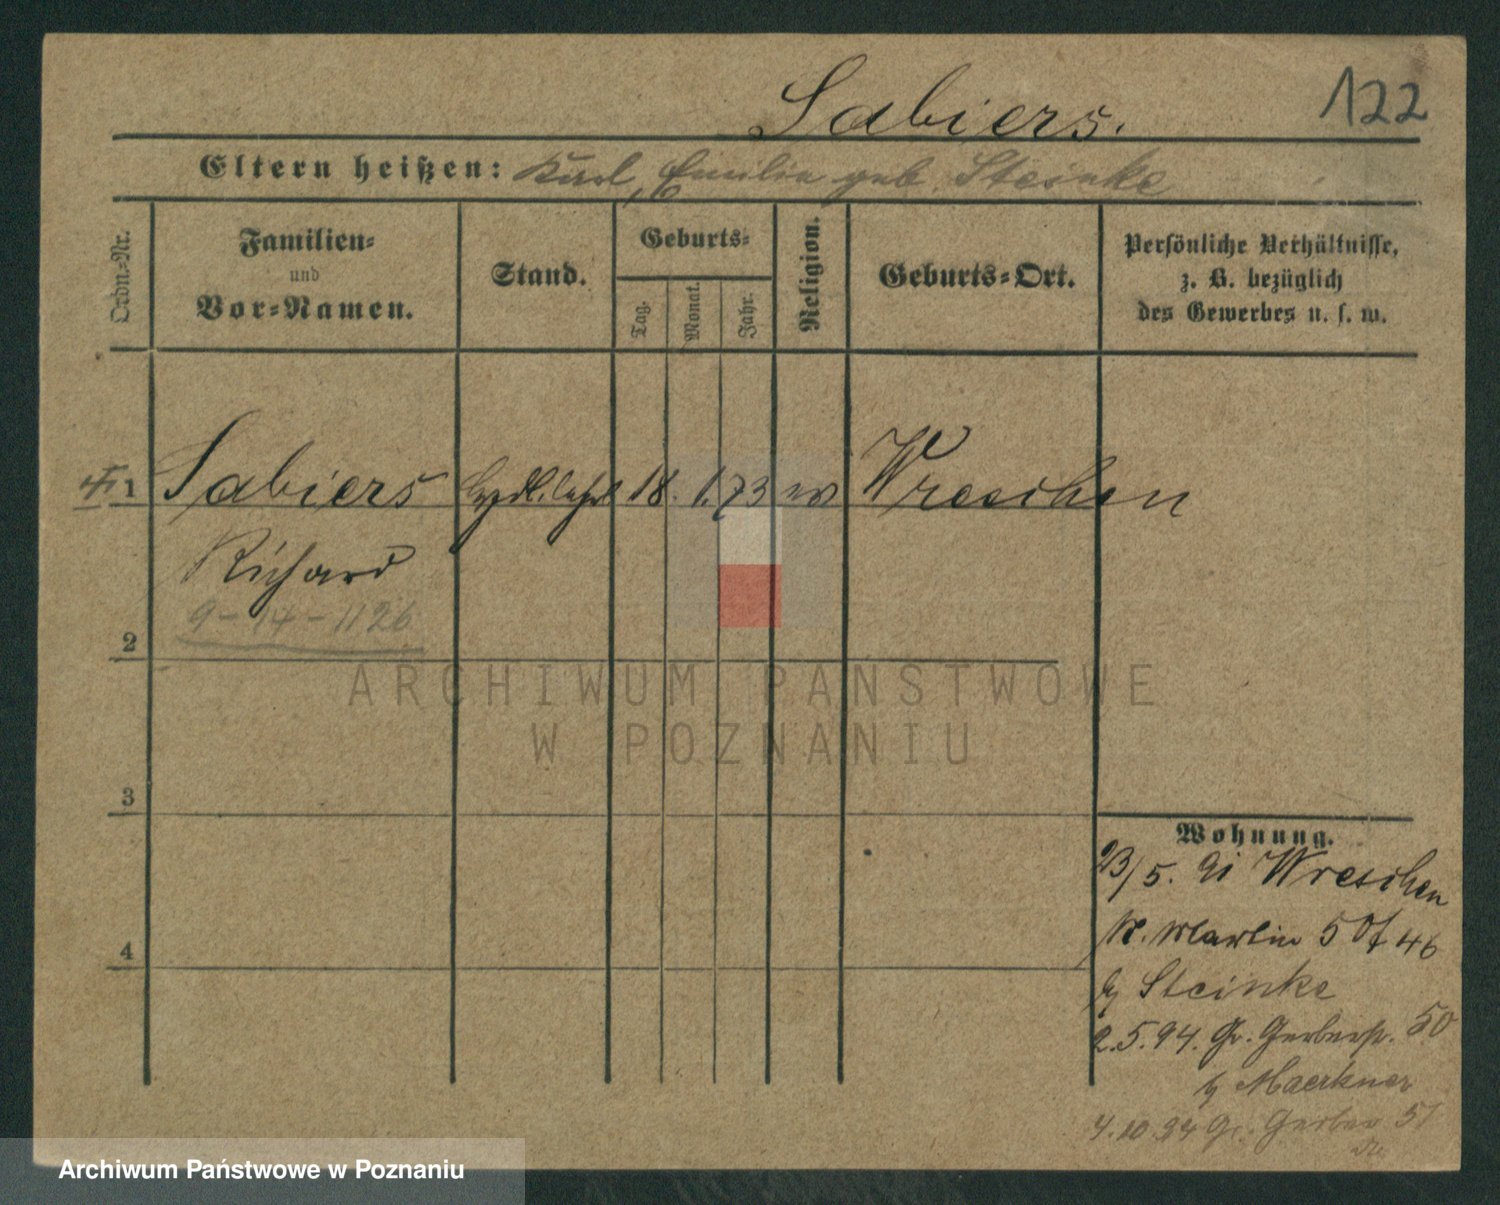 Sabiers.
122
Eltern heißen: Karl, Emilie geb. Steinke
Ordn=Nr.
Familien=
und
Vor=Namen.
Stand.
Geburts=
Tag.
Monat.
Jahr.
Religion.
Geburts=Ort.
Persönliche Verhältnisse,
z. B. bezüglich
des Gewerbes u. s. w.
1 Sabiers 18. 1. 73 Wreschen
Richard
9-14-1126
2
ARCHIWUM PAŃSTWOWE
W POZNANIU
3
Wohnung.
23/5. Wreschen
St. Martin 50 46
b/ Steinke
2.5.94. Gr. Gerberstr. 50
b/ Maerkner
4
4.10.94 Gr. Gerber 51
Archiwum Państwowe w Poznaniu